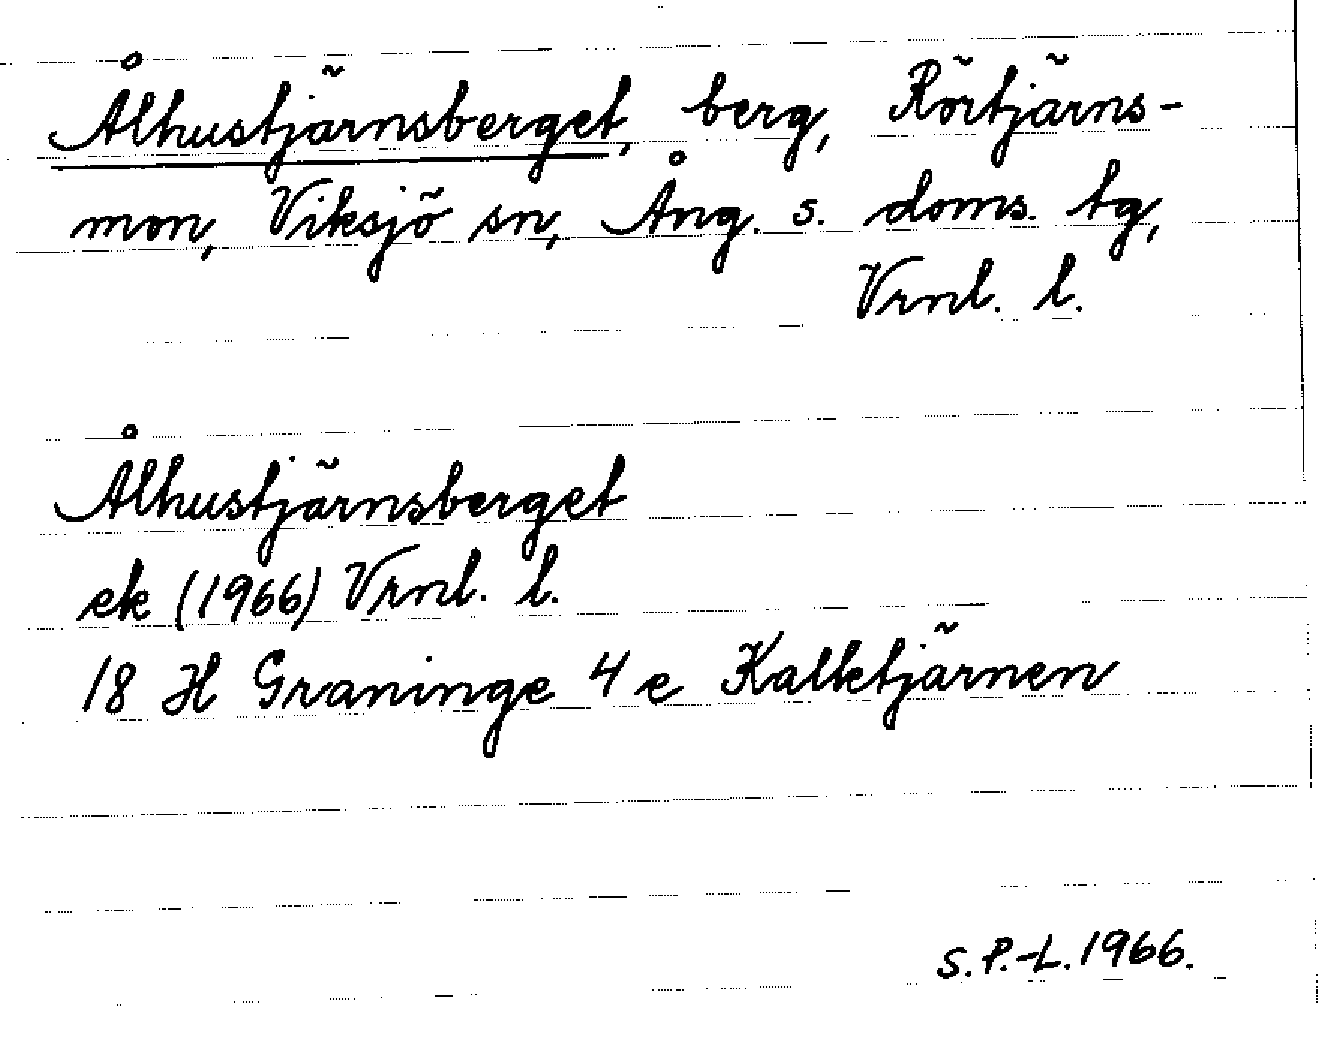 Ålhustjärnsberget, berg, Rörtjärns-
mon, Viksjö sn, Ång. s. doms. tg,
Vrnl. l.
Ålhustjärnsberget
ek (1966) Vrnl. l.
18 H Graninge 4 e Kalktjärnen
S. P.-L. 1966.